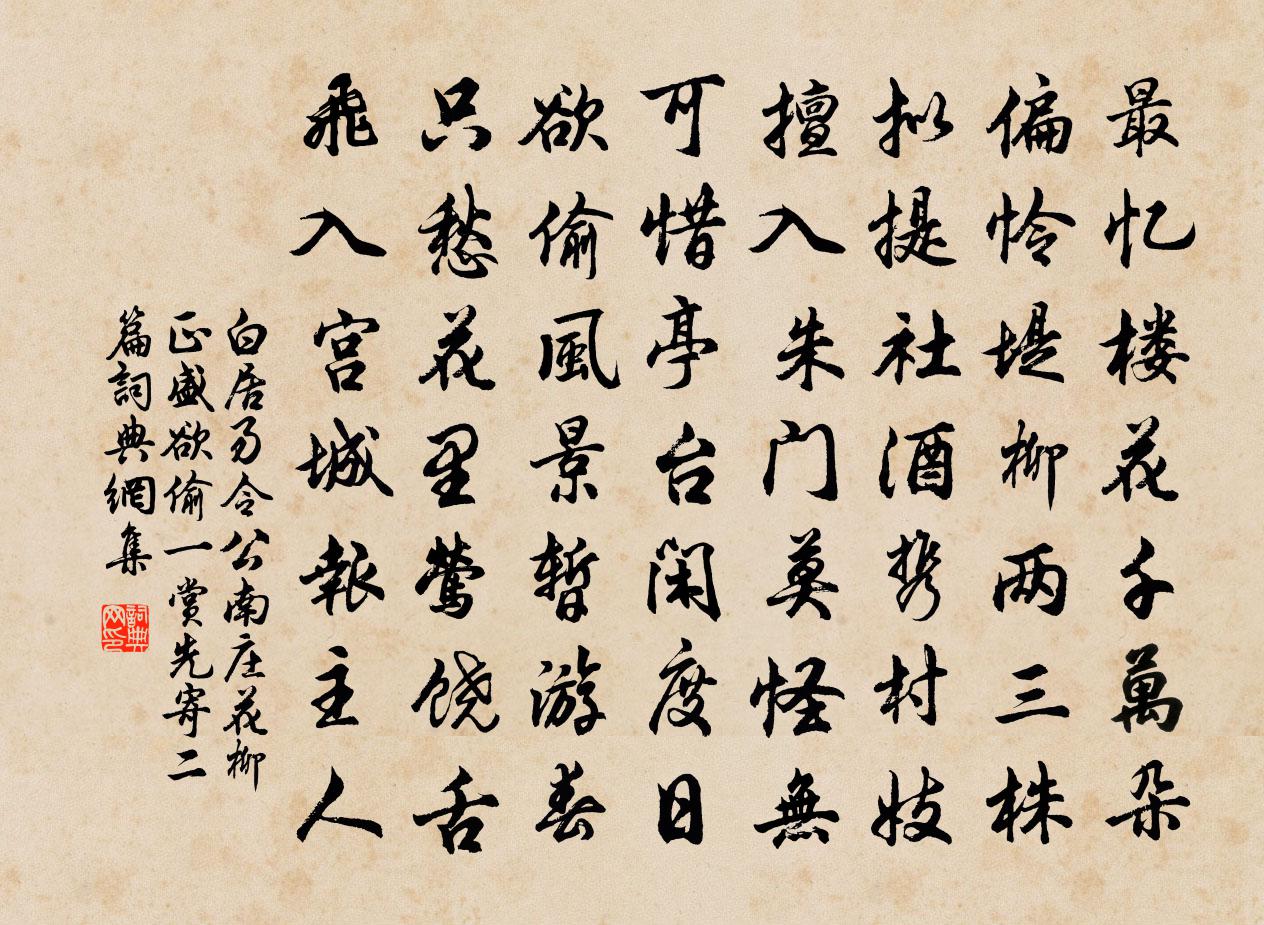 最忆楼花千萬朵
偏怜堤柳两三株
拟提社酒携村妓
擅入朱门莫怪無
可惜亭台闲度日
欲偷風景暂游春
只愁花里莺饶舌
飛入宫城報主人
白居易令公南庄花柳
正盛欲偷一赏先寄二
篇詞典網集
詞典网印